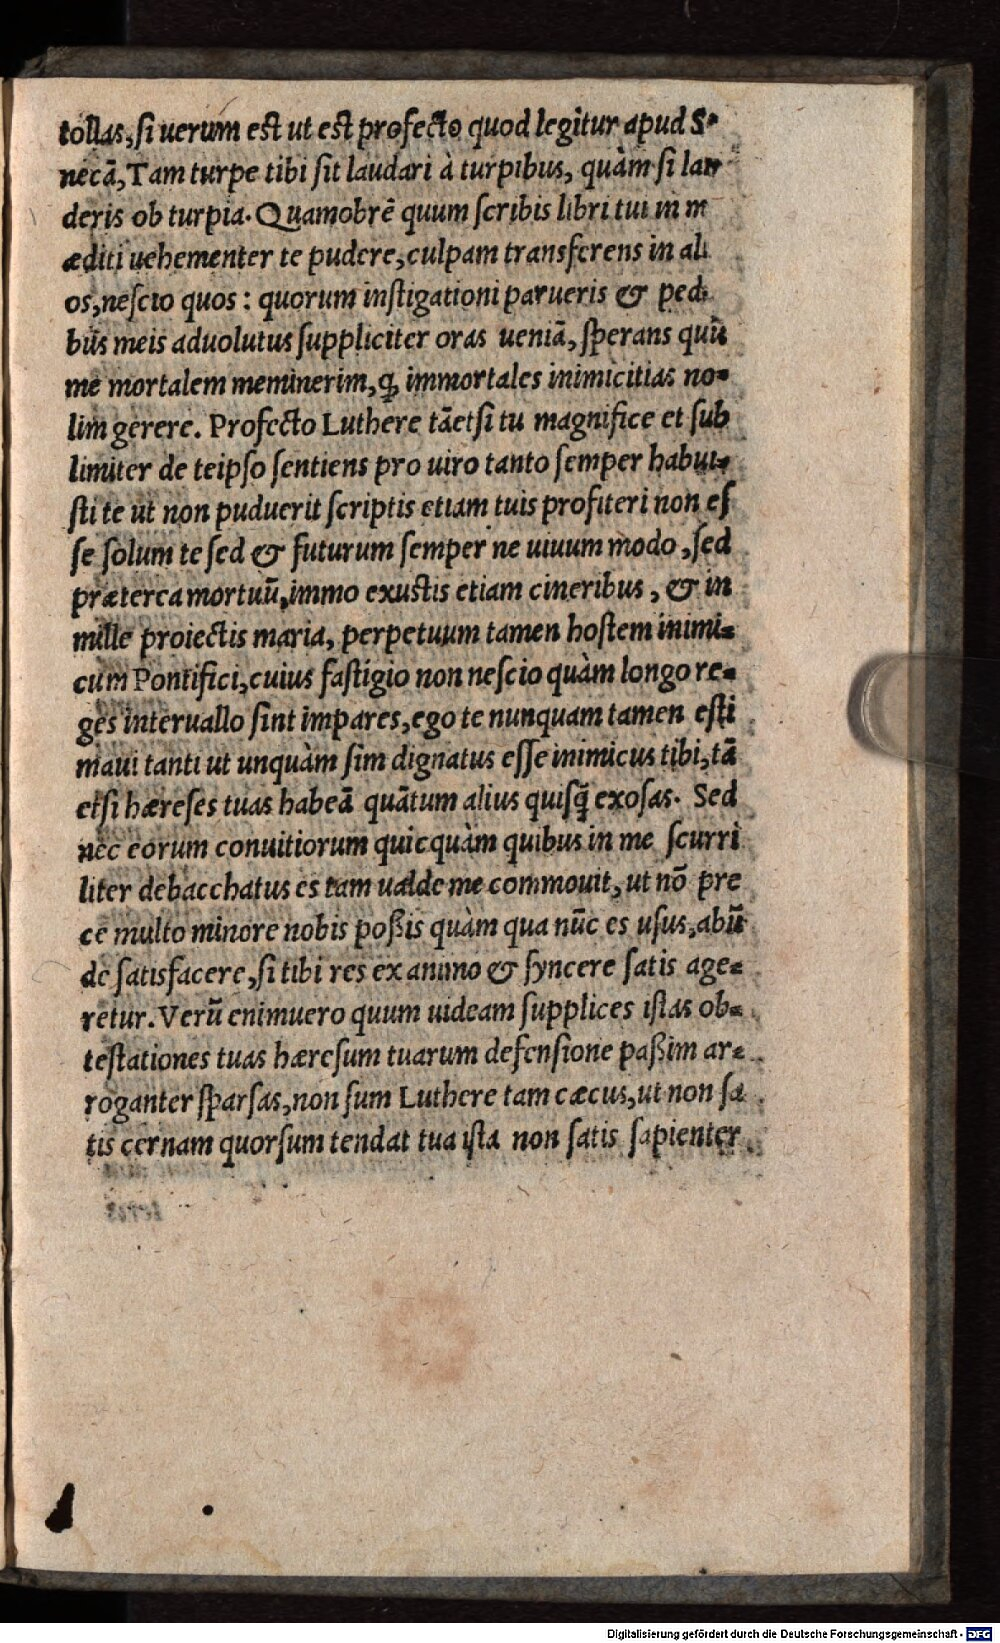 tollas, si uerum est ut est profecto quod legitur apud S
necā, Tam turpe tibi sit laudari à turpibus, quàm si lau
deris ob turpia. Quamobrē quum scribis libri tui in m
æditi uehementer te pudere, culpam transferens in ali
os, nescio quos: quorum instigationi parueris & pedi
bus meis aduolutus suppliciter oras ueniā, sperans quū
me mortalem meminerim, ꝙ immortales inimicitias no-
lim gerere. Profecto Luthere tāetsi tu magnifice et sub
limiter de teipso sentiens pro uiro tanto semper habui-
sti te ut non puduerit scriptis etiam tuis profiteri non es
se solum te sed & futurum semper ne uiuum modo, sed
præterea mortuū, immo exustis etiam cineribus, & in
mille proiectis maria, perpetuum tamen hostem inimi-
cum Pontifici, cuius fastigio non nescio quàm longo re-
ges interuallo sint impares, ego te nunquam tamen esti
maui tanti ut unquàm sim dignatus esse inimicus tibi, tā
etsi hæreses tuas habeā quātum alius quisq̄ exosas. Sed
nec eorum conuitiorum quicquàm quibus in me scurri
liter debacchatus es tam ualde me commouit, ut nō pre
ce multo minore nobis poßis quàm qua nūc es usus, abū
de satisfacere, si tibi res ex animo & syncere satis age-
retur. Verū enimuero quum uideam supplices istas ob-
testationes tuas hæresum tuarum defensione paßim ar-
roganter sparsas, non sum Luthere tam cæcus, ut non sa
tis cernam quorsum tendat tua ista non satis sapienter
Digitalisierung gefördert durch die Deutsche Forschungsgemeinschaft - DFG